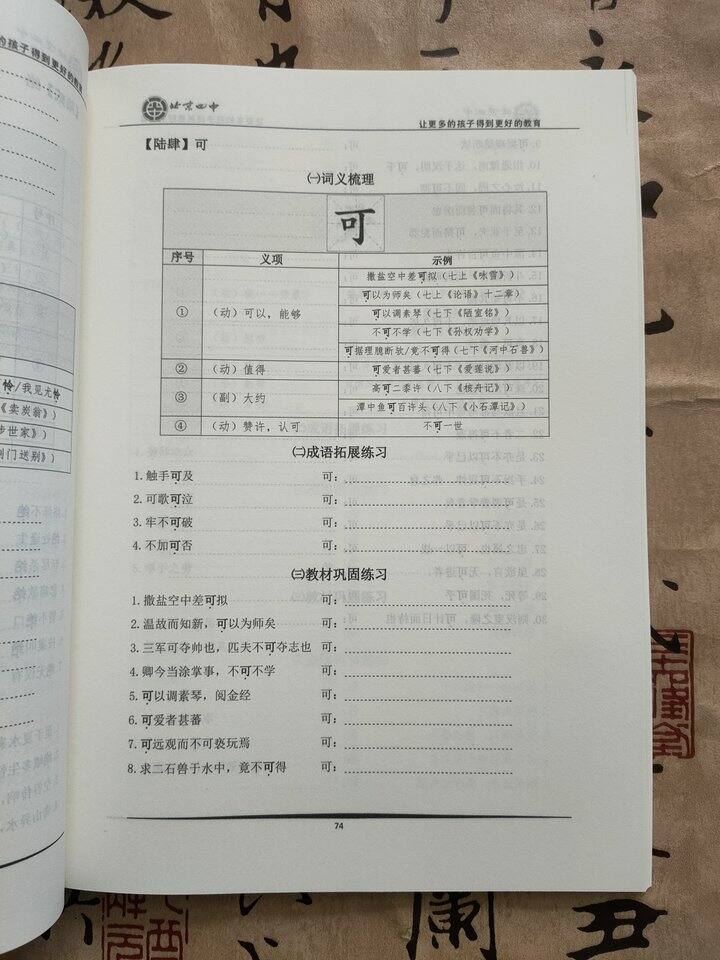 的孩子得到更好的教育
怜/我见尤怜
《卖炭翁》）
步世家》）
荆门送别》）
北京四中
让更多的孩子得到更好的教育
【陆肆】可
㈠词义梳理
可
序号 义项 示例
① （动）可以，能够
撒盐空中差可拟（七上《咏雪》）
可以为师矣（七上《论语》十二章）
可以调素琴（七下《陋室铭》）
不可不学（七下《孙权劝学》）
可据理臆断欤/竟不可得（七下《河中石兽》）
② （动）值得 可爱者甚蕃（七下《爱莲说》）
③ （副）大约
高可二黍许（八下《核舟记》）
潭中鱼可百许头（八下《小石潭记》）
④ （动）赞许，认可 不可一世
㈡成语拓展练习
1.触手可及 可：
2.可歌可泣 可：
3.牢不可破 可：
4.不加可否 可：
㈢教材巩固练习
1.撒盐空中差可拟 可：
2.温故而知新，可以为师矣 可：
3.三军可夺帅也，匹夫不可夺志也 可：
4.卿今当涂掌事，不可不学 可：
5.可以调素琴，阅金经 可：
6.可爱者甚蕃 可：
7.可远观而不可亵玩焉 可：
8.求二石兽于水中，竟不可得 可：
74